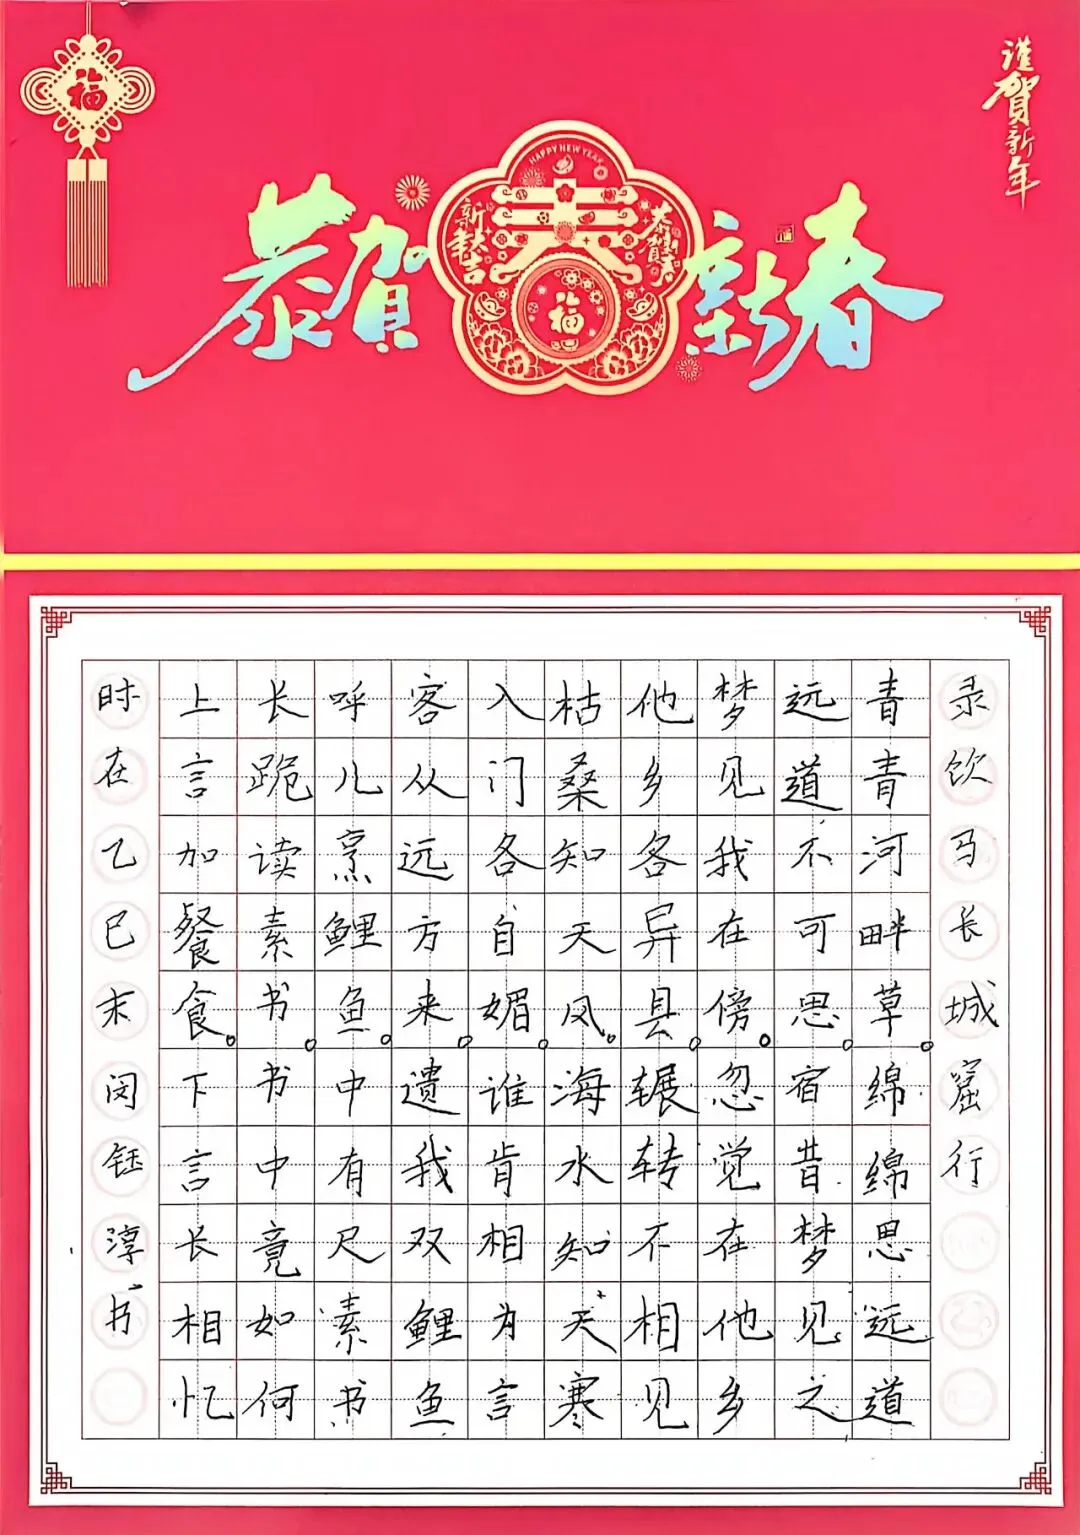 福
謹賀新年
恭賀新春
HAPPY NEW YEAR
新年大吉
春
福
录饮马长城窟行
青青河畔草。绵绵思远道
远道不可思。宿昔梦见之
梦见我在傍。忽觉在他乡
他乡各异县。辗转不相见
枯桑知天风。海水知天寒
入门各自媚。谁肯相为言
客从远方来。遗我双鲤鱼
呼儿烹鲤鱼。中有尺素书
长跪读素书。书中竟如何
上言加餐食。下言长相忆
时在乙巳末闵钰淳书